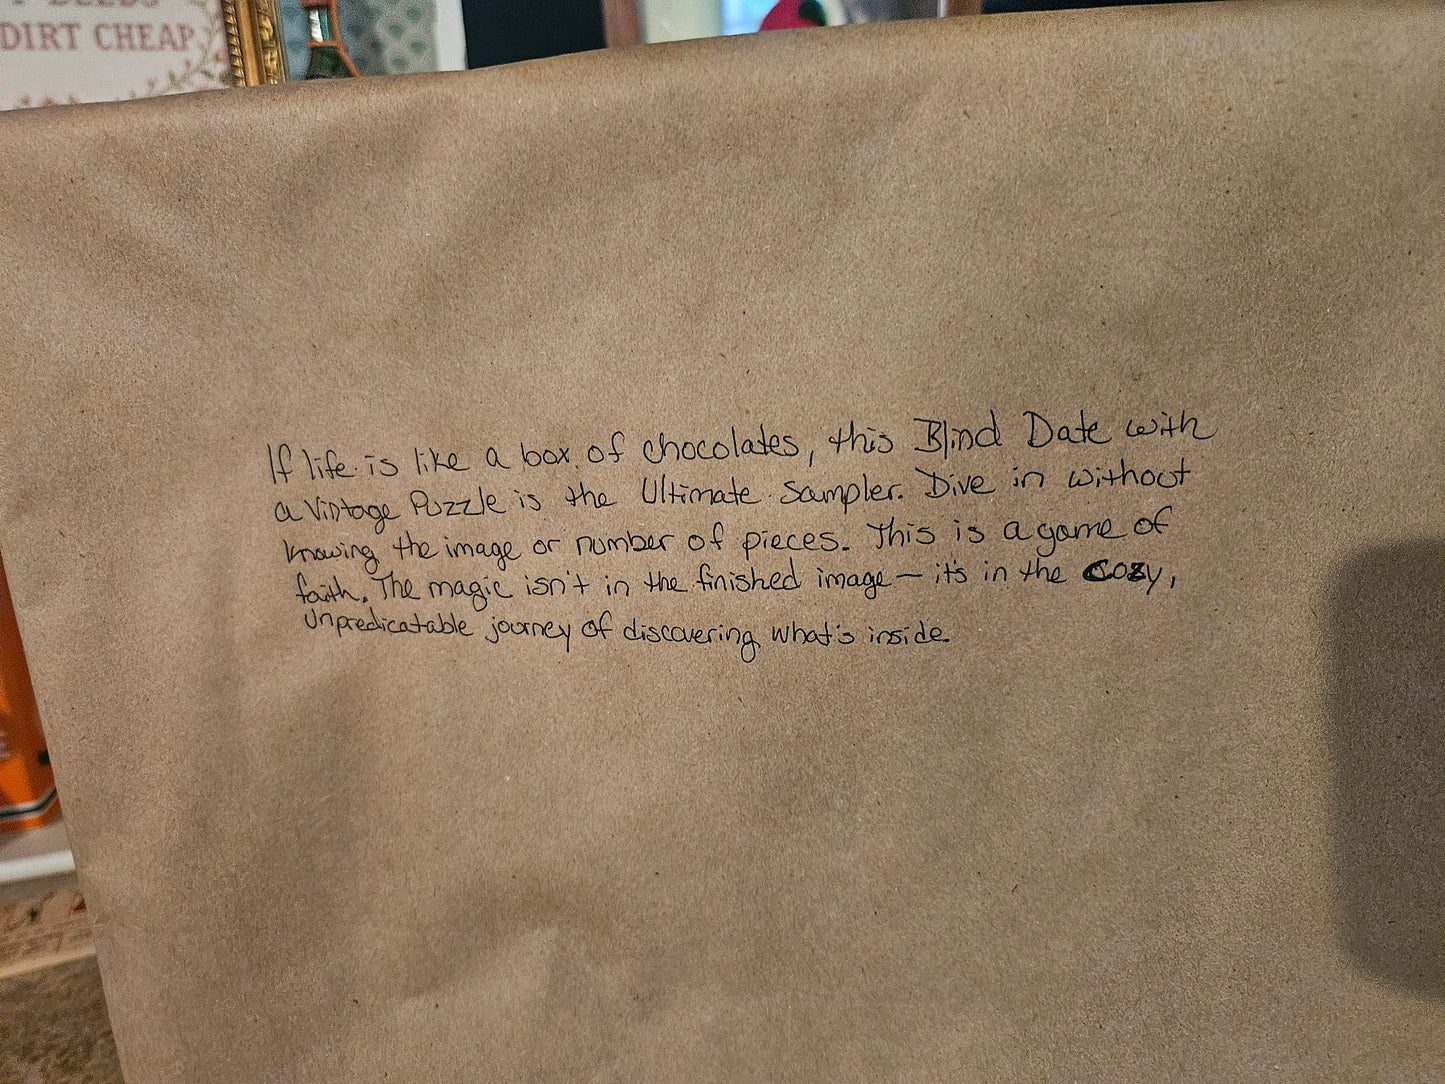 DEEDS
DIRT CHEAP
If life is like a box of chocolates, this Blind Date with
a Vintage Puzzle is the Ultimate Sampler. Dive in without
knowing the image or number of pieces. This is a game of
faith. The magic isn't in the finished image — it's in the cozy,
Unpredicatable journey of discovering what's inside.